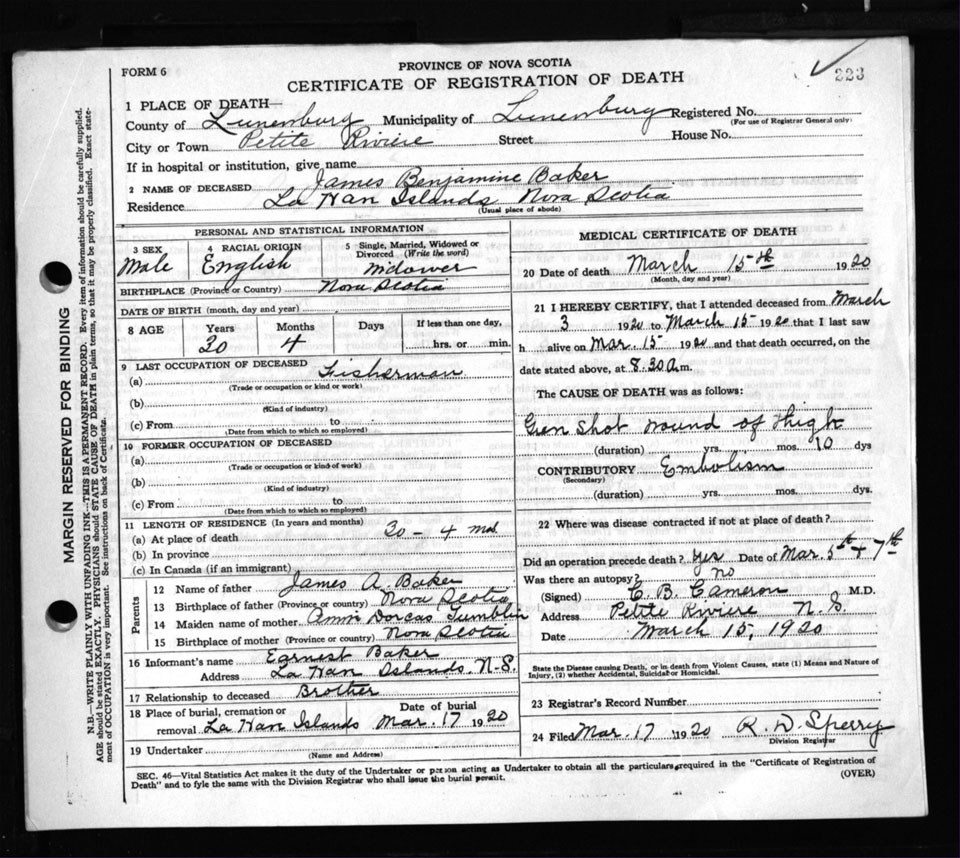 PROVINCE OF NOVA SCOTIA
FORM 6
CERTIFICATE OF REGISTRATION OF DEATH
223
1 PLACE OF DEATH—
County of Lunenburg Municipality of Lunenburg Registered No.
(For use of Registrar General only)
City or Town Petite Riviere Street House No.
If in hospital or institution, give name
2 NAME OF DECEASED James Benjamine Baker
Residence La Han Islands Nova Scotia
(Usual place of abode)
PERSONAL AND STATISTICAL INFORMATION
3 SEX 4 RACIAL ORIGIN 5 Single, Married, Widowed or Divorced (Write the word)
Male English Widower
BIRTHPLACE (Province or Country) Nova Scotia
DATE OF BIRTH (month, day and year)
8 AGE Years Months Days If less than one day,
30 4 hrs. or min.
9 LAST OCCUPATION OF DECEASED
(a) Fisherman
(Trade or occupation or kind or work)
(b)
(Kind of industry)
(c) From to
(Date from which to which so employed)
10 FORMER OCCUPATION OF DECEASED
(a)
(Trade or occupation or kind of work)
(b)
(Kind of industry)
(c) From to
(Date from which to which so employed)
11 LENGTH OF RESIDENCE (In years and months)
(a) At place of death 30 - 4 mos
(b) In province
(c) In Canada (if an immigrant)
Parents
12 Name of father James A. Baker
13 Birthplace of father (Province or country) Nova Scotia
14 Maiden name of mother Dorcas
15 Birthplace of mother (Province or country) Nova Scotia
16 Informant's name Earnest Baker
Address La Han Islands. N.S.
17 Relationship to deceased Brother
18 Place of burial, cremation or Date of burial
removal La Han Islands Mar. 17 1920
19 Undertaker
(Name and Address)
MEDICAL CERTIFICATE OF DEATH
20 Date of death March 15th 1920
(Month, day and year)
21 I HEREBY CERTIFY, that I attended deceased from March
3 1920 to March 15 1920 that I last saw
h alive on Mar. 15 1920 and that death occurred, on the
date stated above, at 8.30 a.m.
The CAUSE OF DEATH was as follows:
Gun Shot wound of thigh
(duration) yrs. mos. 10 dys
CONTRIBUTORY Embolism
(Secondary)
(duration) yrs. mos. dys.
22 Where was disease contracted if not at place of death?
Did an operation precede death? yes Date of Mar. 5th + 7th
Was there an autopsy? no
(Signed) C. B. Cameron M.D.
Address Petite Riviere N.S.
Date March 15, 1920
State the Disease causing Death, or in death from Violent Causes, state (1) Means and Nature of
Injury, (2) whether Accidental, Suicidal or Homicidal.
23 Registrar's Record Number
24 Filed Mar. 17 1920 R. D. Sperry
Division Registrar
SEC. 46—Vital Statistics Act makes it the duty of the Undertaker or person acting as Undertaker to obtain all the particulars required in the "Certificate of Registration of
Death" and to fyle the same with the Division Registrar who shall issue the burial permit.
(OVER)
MARGIN RESERVED FOR BINDING
N.B.—WRITE PLAINLY WITH UNFADING INK—THIS IS A PERMANENT RECORD. Every item of information should be carefully supplied.
AGE should be stated EXACTLY. PHYSICIANS should STATE CAUSE OF DEATH in plain terms, so that it may be properly classified. Exact state-
ment of OCCUPATION is very important. See instructions on back of Certificate.